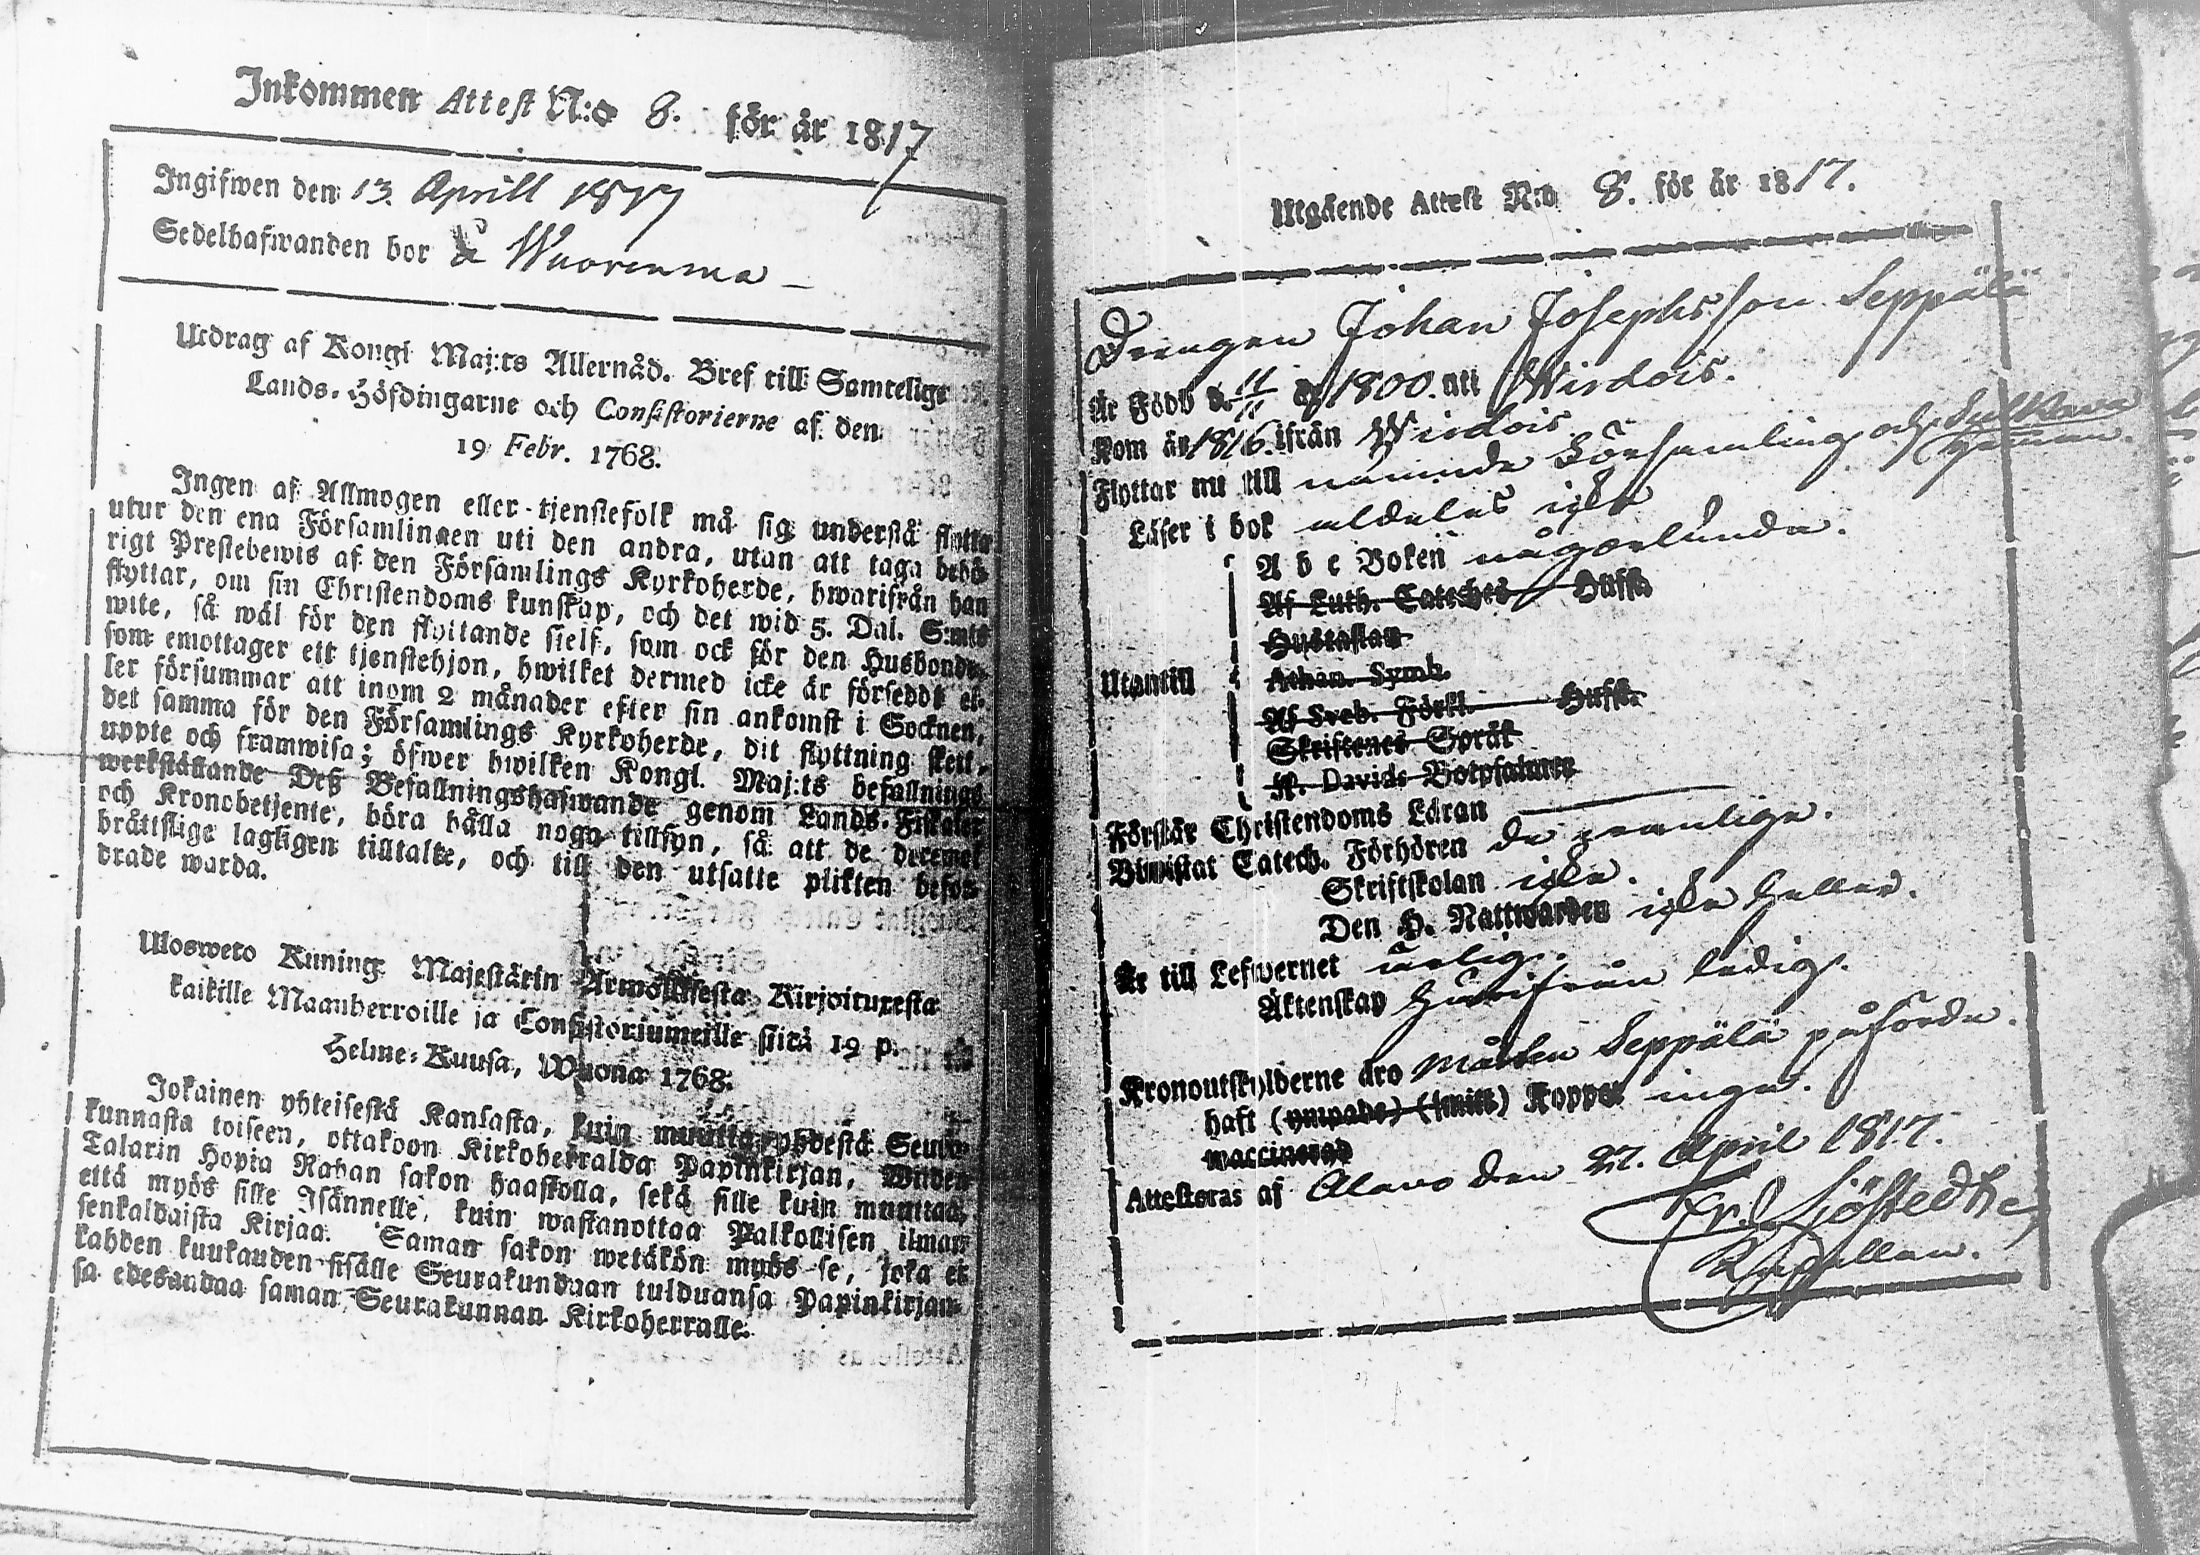 Inkommen Attest N:o 8. för år 1817
Ingifwen den 13. Aprill 1817
Sedelhafwanden bor Wuorenma
Utdrag af Kongl Maj:ts Allernåd. Bref till Samtelige
Lands-Höfdingarne och Consistorierne af den
19 Febr. 1768.
Ingen af Allmogen eller tjenstefolk må sig understå flytta
utur den ena Församlingen uti den andra, utan att taga behö-
rigt Prestebewis af den Församlings Kyrkoherde, hwarifrån han
flyttar, om sin Christendoms kunskap, och det wid 5. Dal. S:mts
wite, så wäl för den flyttande sielf, som ock för den Husbonde,
som emottager ett tjenstehjon, hwilket dermed icke är försedt el-
ler försummar att inom 2 månader efter sin ankomst i Socknen,
det samma för den Församlings Kyrkoherde, dit flyttning skett,
uppte och framwisa; öfwer hwilken Kongl. Maj:ts befallnings
werkställande Deß Befallningshafwande genom Lands-Fiskaler
och Kronobetjente, böra hålla noga tillsyn, så att de deremot
bråttslige lagligen tilltalte, och till den utsatte plikten befor-
drade warda.
Ulosweto Kuning. Majestätin Armollisesta Kirjoituxesta
kaikille Maanherroille ja Consistoriumeille siitä 19 p.
Helme-Kuusa, Wuona 1768.
Jokainen yhteisestä Kansasta, kuin muutta yhdestä Seura-
kunnasta toiseen, ottakoon Kirkoherralda Papinkirjan, Wiiden
Talarin Hopia Rahan sakon haastolla, sekä sille kuin muuttaa,
että myös sille Isännelle, kuin wastanottaa Palkollisen ilman
senkaldaista Kirjaa. Saman sakon wetäkön myös se, joka ei
kahden kuukauden sisälle Seurakundaan tulduansa Papinkirjan-
sa edesandaa saman Seurakunnan Kirkoherralle.
Utgående Attest N:o 8. för år 1817.
Drengen Johan Josephsson Seppälä
Är Född d. 11/11 1800. att Wirdois.
Kom år 1816. ifrån Wirdois.
Flyttar nu till nämnde Församling och Sulkava
hemman.
Läser i bok aldeles icke
A b c Boken någorlunda.
Af Luth. Cateches Hufst.
Hustaflan
Utantill Athan. Symb.
Af Sveb. Förkl. Hufst.
Skriftenes Språk
K. Davids Botpsalmer
Förstår Christendoms Läran
Biwistat Catech. Förhören de enanlige.
Skriftskolan icke.
Den H. Nattwarden icke heller.
Är till Lefwernet ärlig.
Äktenskap härifrån ledig.
Kronoutskylderne äro Matten Seppälä påförde.
haft (ympade) (smitt) Koppor inga.
waccinerad
Attesteras af Alavo den 27. April 1817.
Fr. Sjöstedt
Kapellan.